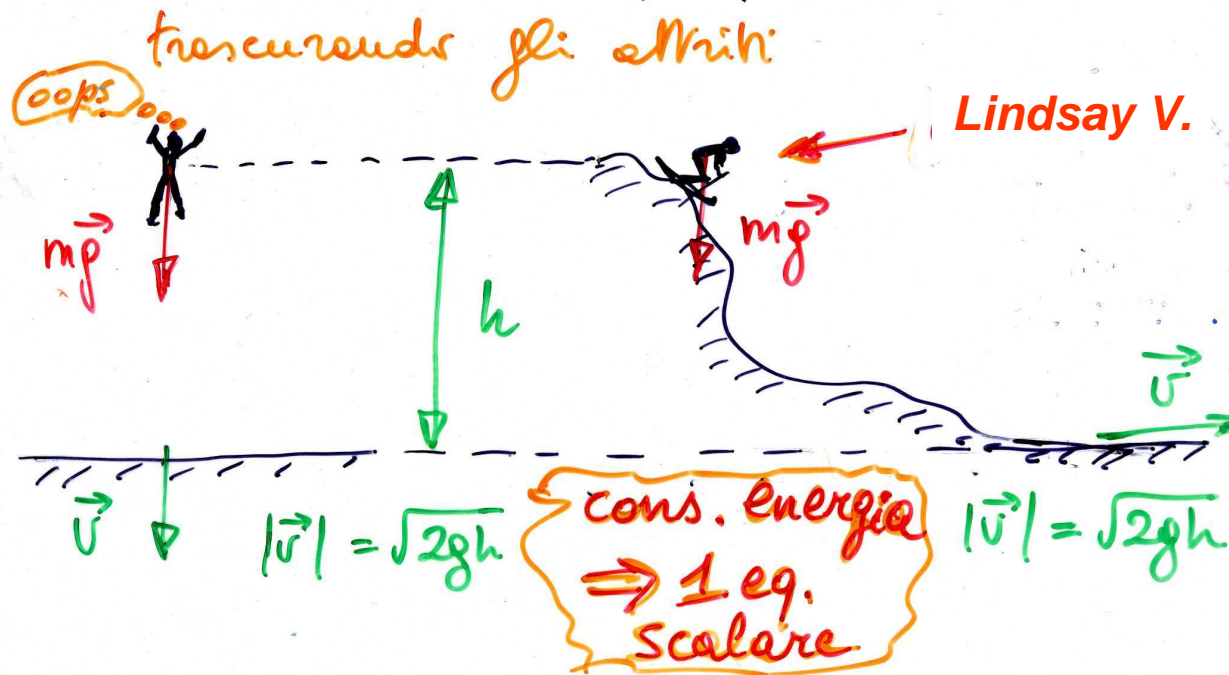 trascurando gli attriti
oops
Lindsay V.
mg
mg
h
v
v
|v| = √2gh
cons. energia
⇒ 1 eq.
scalare
|v| = √2gh